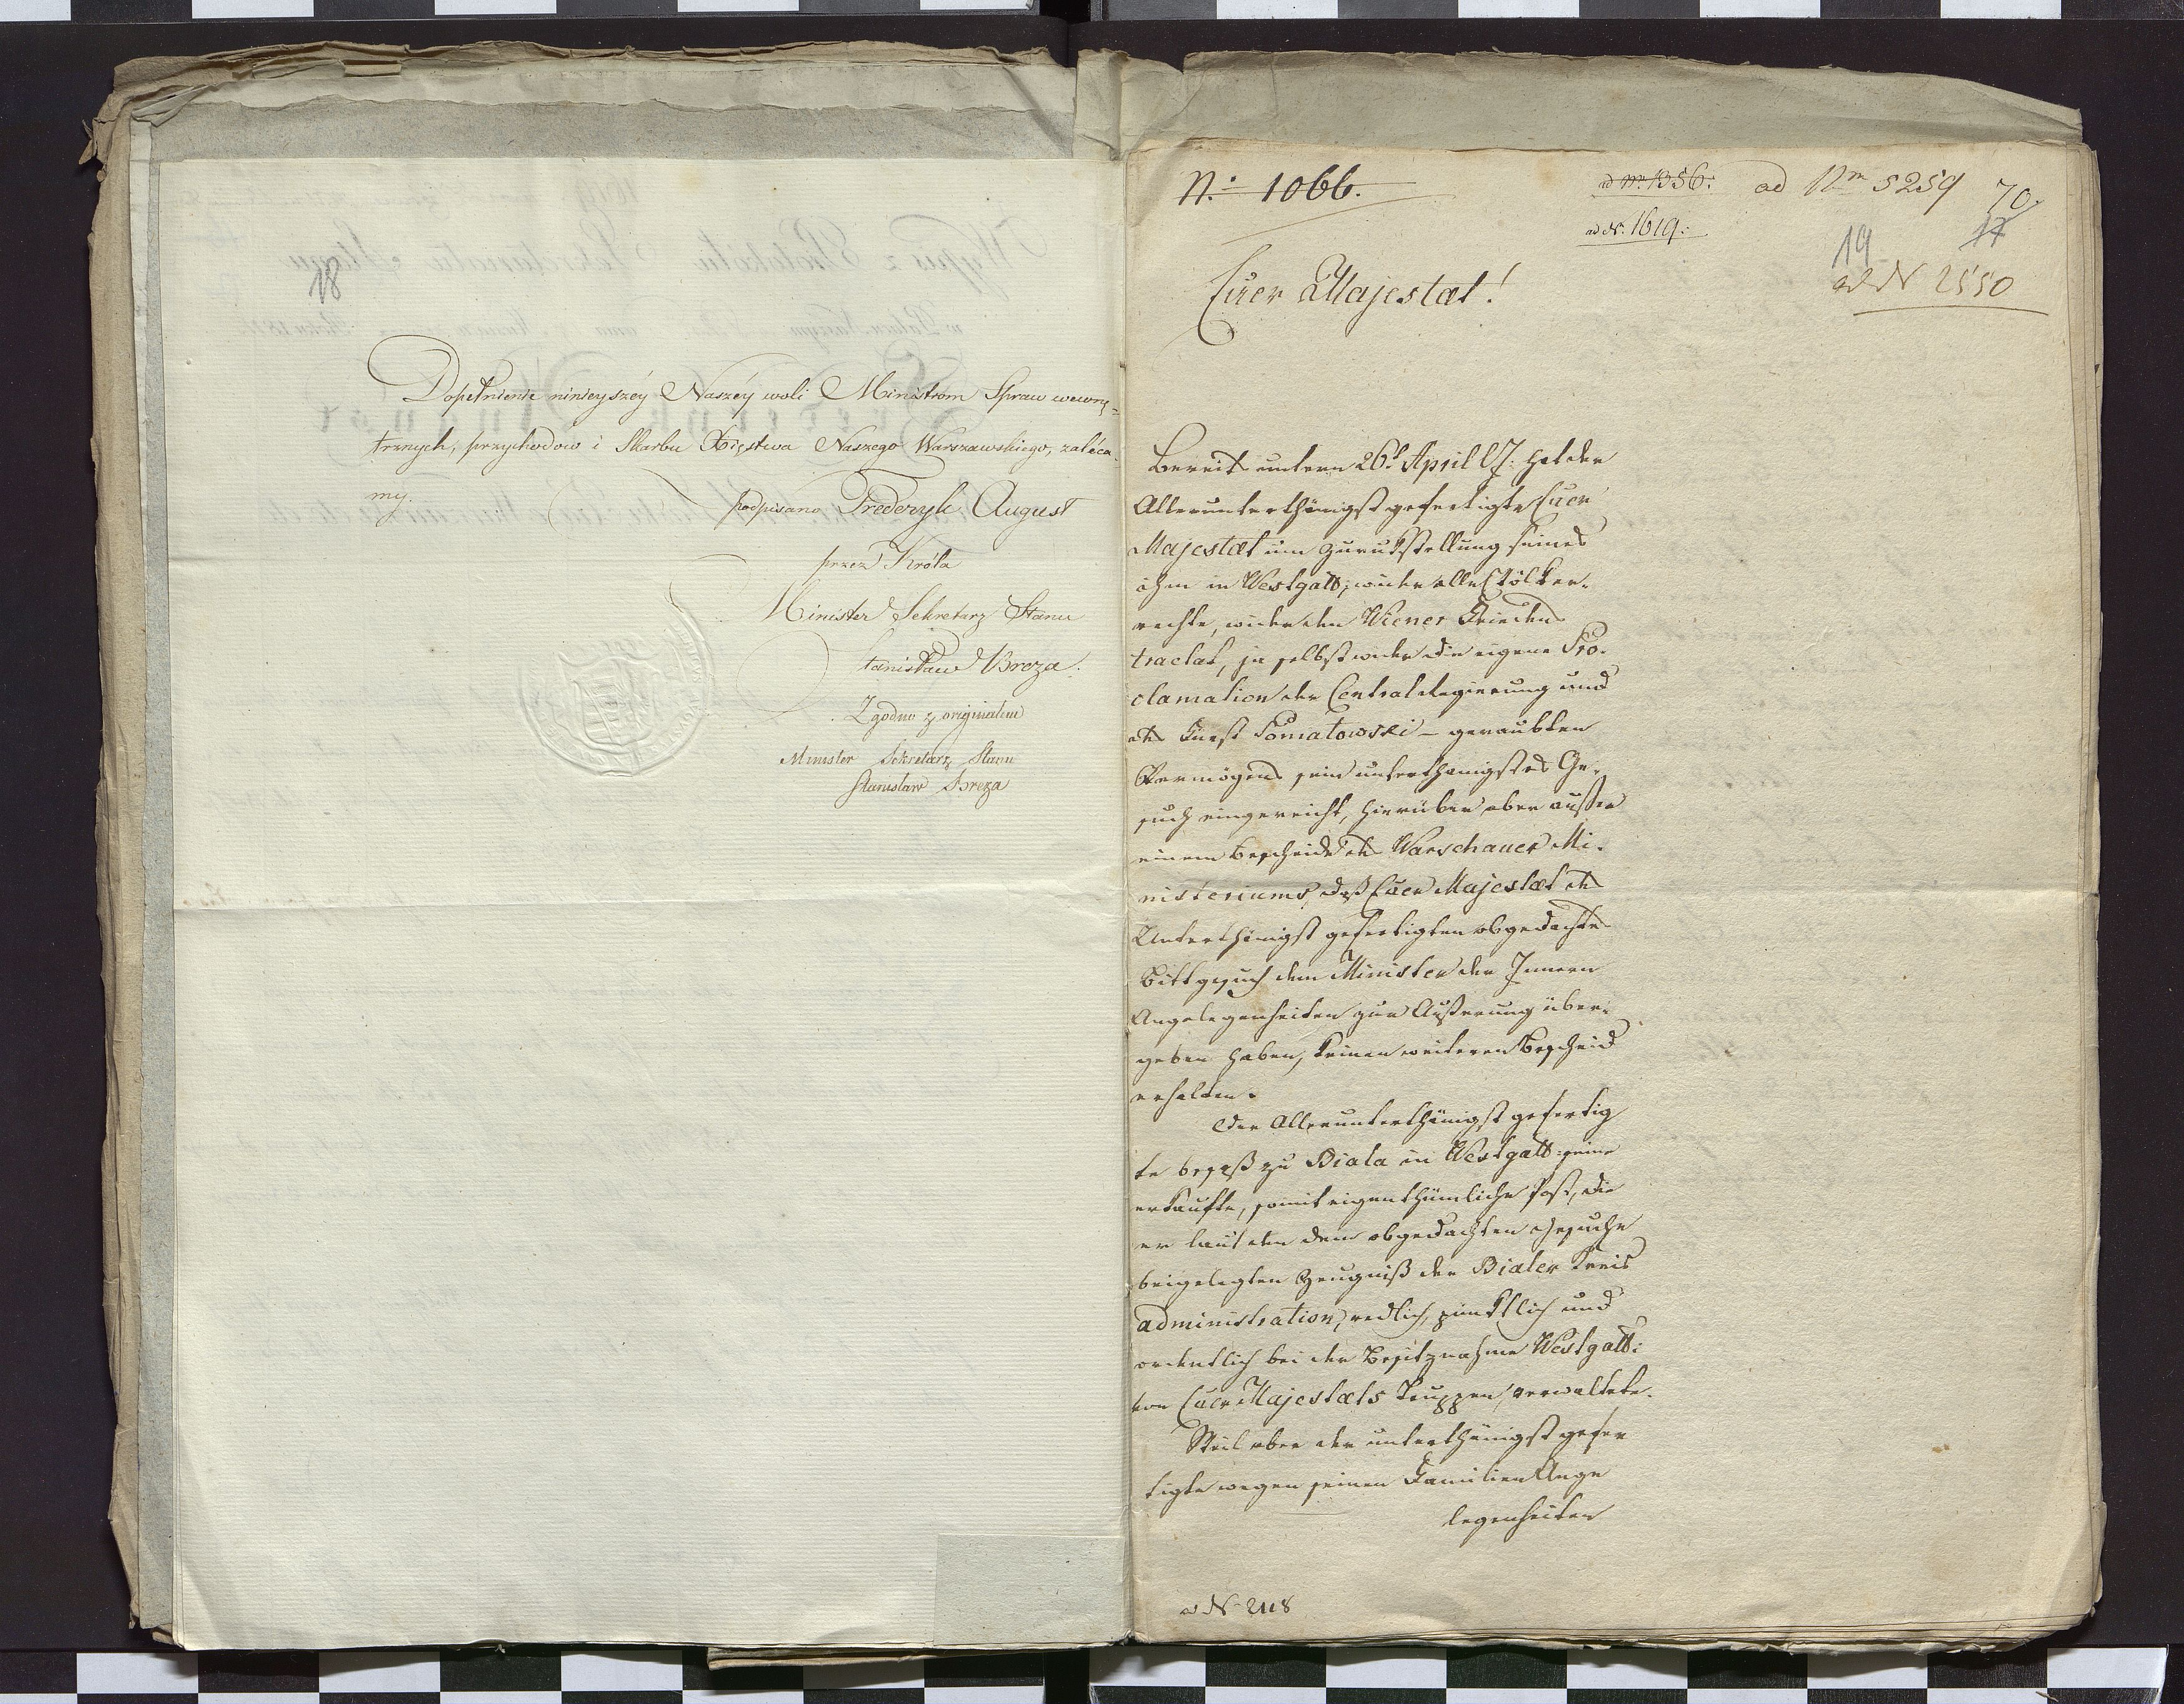 18
Dopełnienie ninieyszéy Naszéy woli Ministrom Spraw wewnę=
trznych, przychodow i Skarbu Xięstwa Naszego Warszawskiego, zaléca=
my.
podpisano Frederyk August
przez Króla
Minister Sekretarz Stanu
Stanisław Breza.
Zgodno z originałem
Minister Sekretarz Stanu
Stanisław Breza
N.º 1066.
ad Nº 1356:
ad Nm 5259
70.
ad N. 1619:
17
19
ad N 2550
Euer Majestæt!
Bereits unterm 26t April l. J. hat der
Allerunterthänigst gefertigte Euer
Majestæt um Zurukstellung seines
ihm in Westgall; wider alle Völker-
rechte, wider den Wiener Friedens
tractat, ja selbst wider die eigene Pro-
clamation der Central Regierung und
des Fürst Poniatowski – geraubten
Vermögens sein unterthänigstes Ge-
such eingereicht, hierüber aber außer
einem Bescheide des Warschauer Mi-
nisteriums, daß Euer Majestæt des
Unterthänigst gefertigten obgedachte
Bittgesuch dem Minister der Innern
Angelegenheiten zur Äußerung über-
geben haben, keinen weiteren Bescheid
erhalten.
Der Allerunterthänigst gefertig
te besaß zu Biala in Westgall: eine
erkaufte, somit eigenthümliche Post, die
er laut den dem obgedachten Gesuche
beigelegten Zeugniß der Bialer Kreis
administration, redlich, pünktlich und
ordentlich bei der Besitznahme Westgall:
von Euer Majestæts Truppen, verwaltete.
Weil aber der unterthänigst gefer
tigte wegen seinen Familien Ange
legenheiten
ad N. 2118